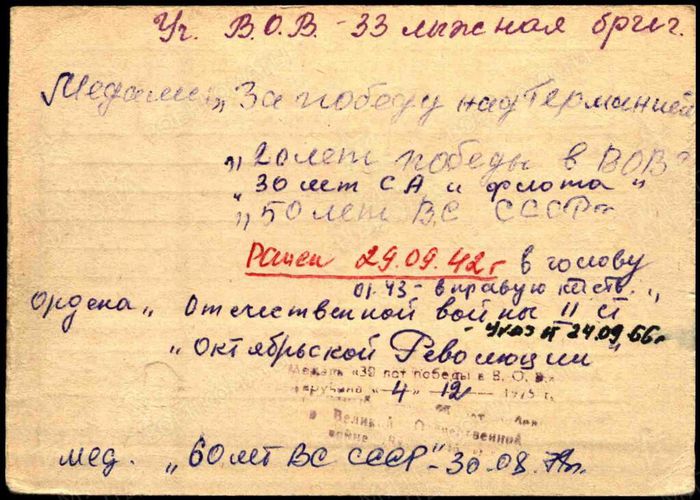 Уч. В.О.В. - 33 лыжная бриг.
Медали: „За победу над Германией
„20 лет победы в ВОВ"
„30 лет СА и флота"
„50 лет ВС СССР"
Ранен 29.09.42 г в голову
01.43 - в правую кисть.
Ордена „Отечественной войны II ст
- Указ от 24.09.66 г
„Октябрьской Революции"
Медаль «30 лет победы в В. О. В.»
вручена «4» 12 1975 г.
в Великой Отечественной
войне
мед. „60 лет ВС СССР" - 30.08.